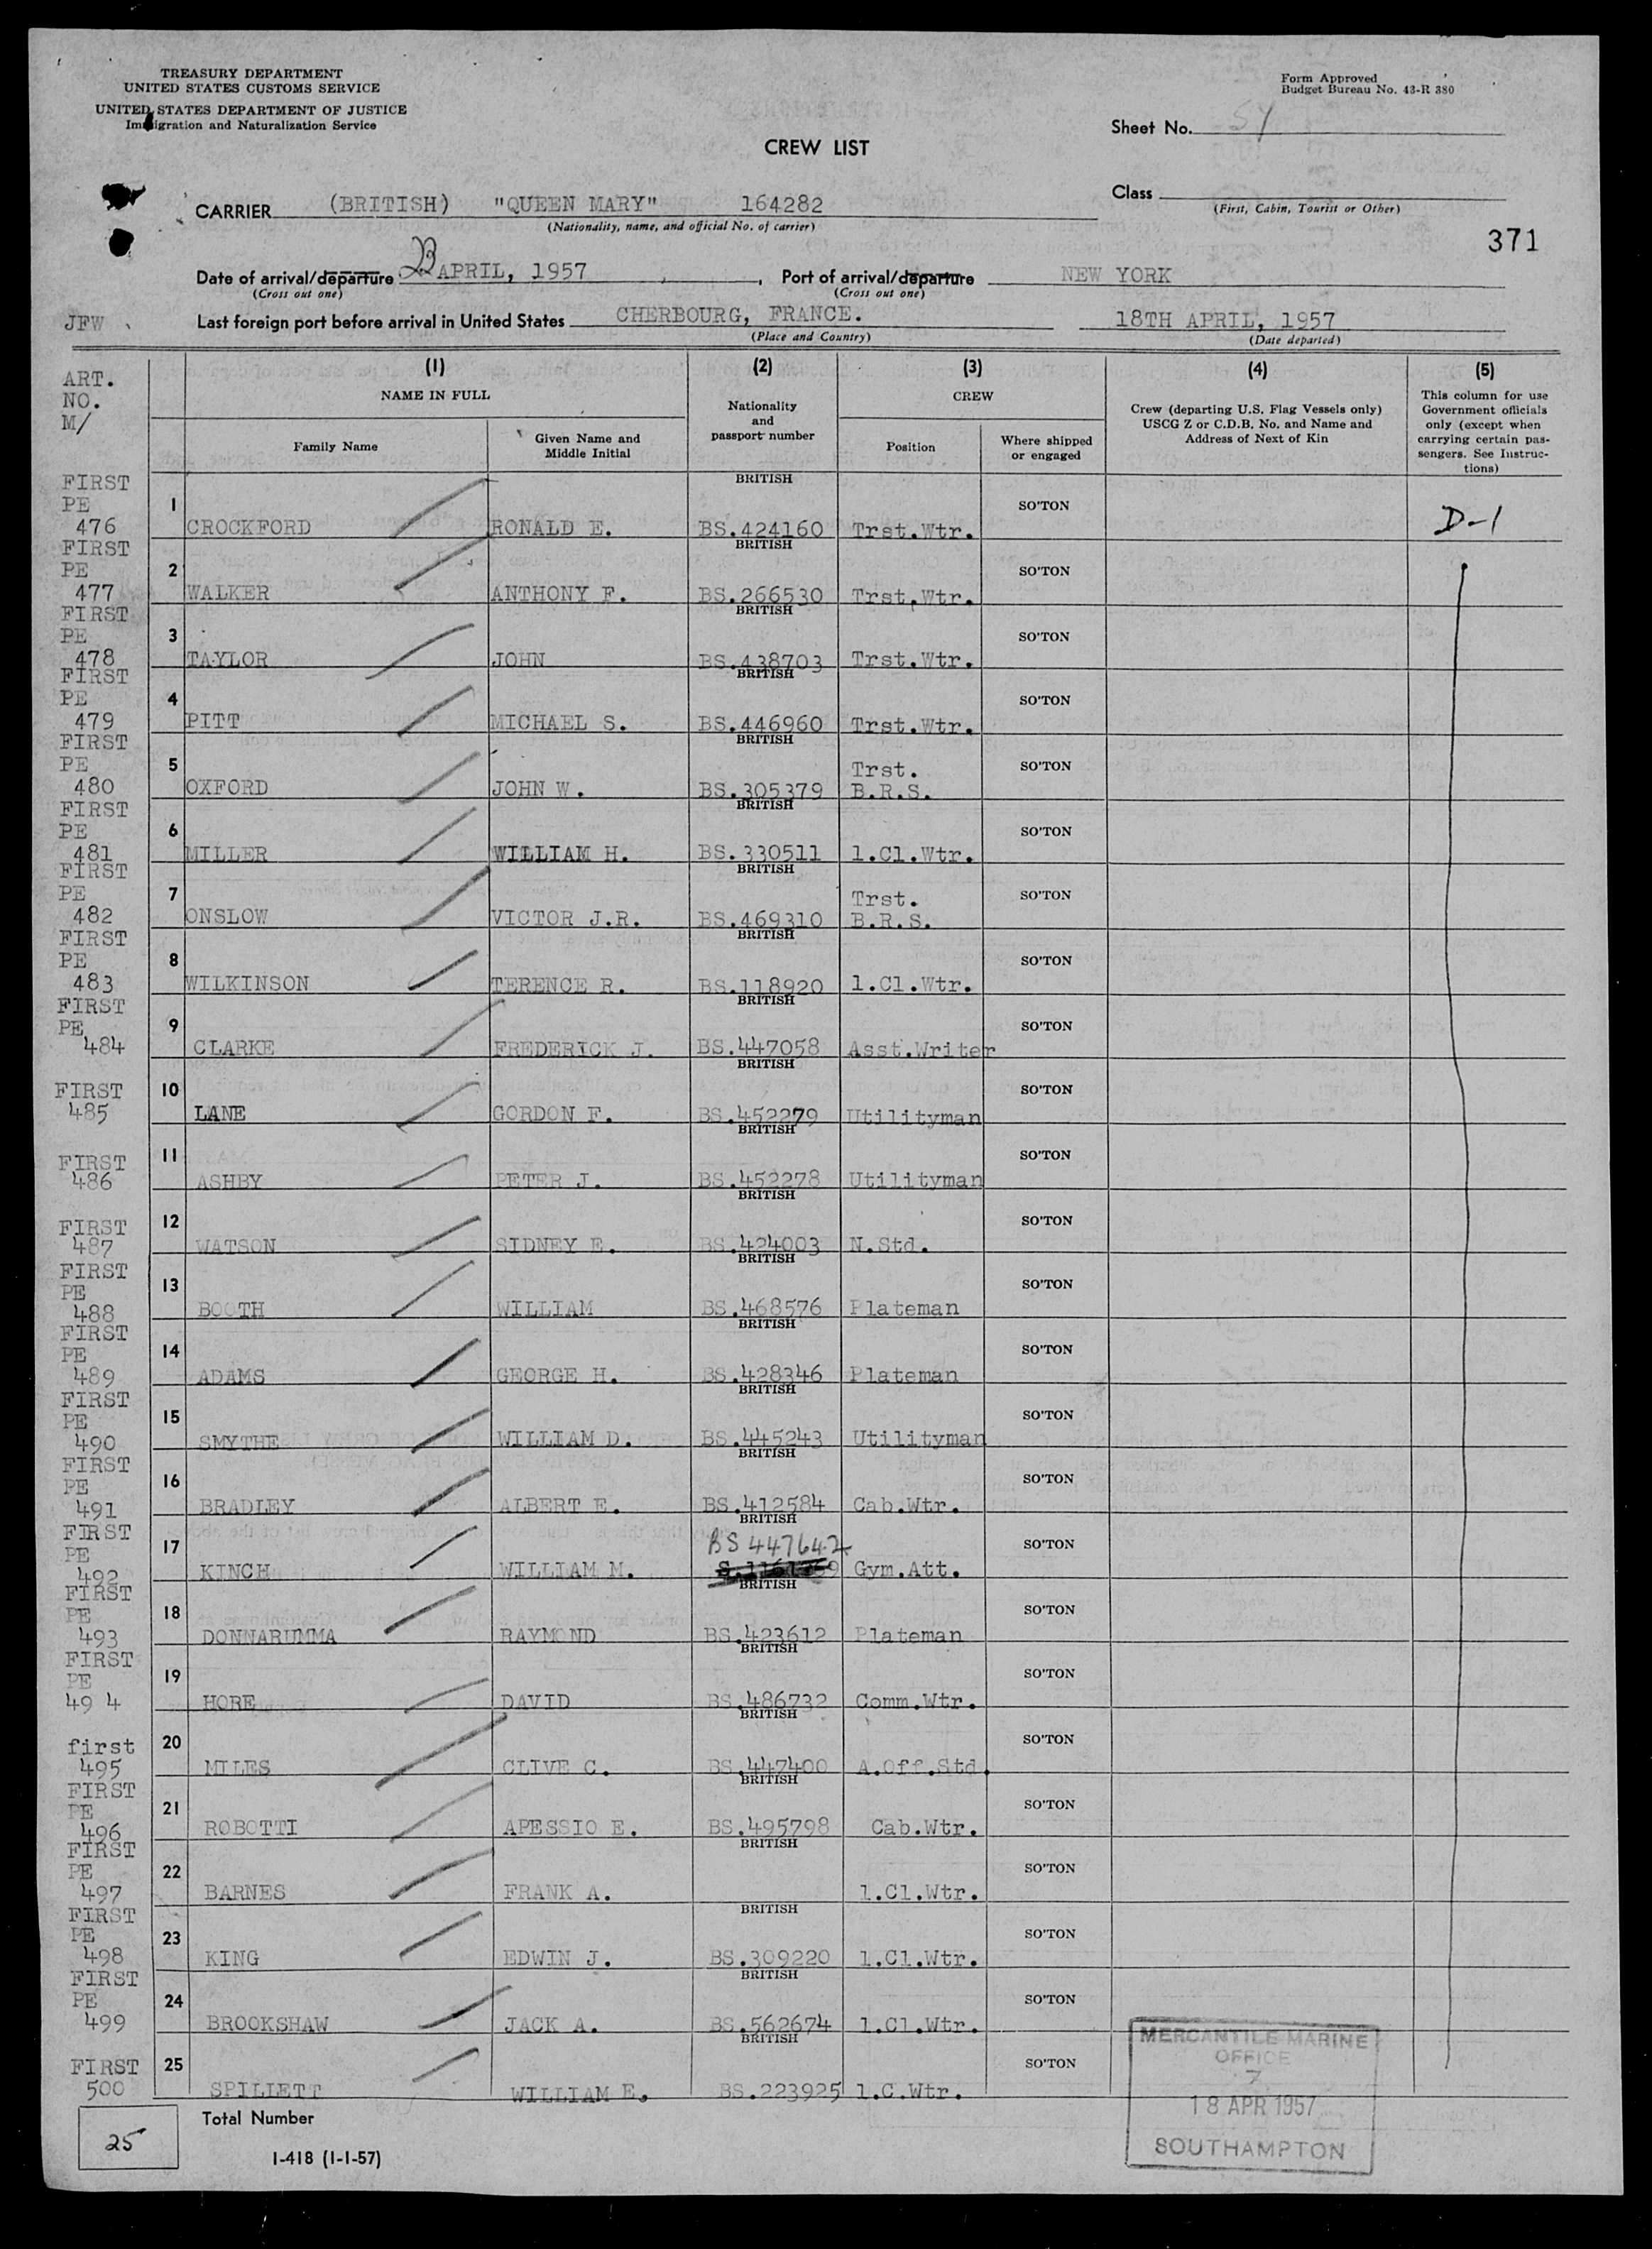 TREASURY DEPARTMENT
UNITED STATES CUSTOMS SERVICE
UNITED STATES DEPARTMENT OF JUSTICE
Immigration and Naturalization Service
Form Approved
Budget Bureau No. 43-R 380
Sheet No.
CREW LIST
Class
(First, Cabin, Tourist or Other)
CARRIER (BRITISH) "QUEEN MARY" 164282
(Nationality, name, and official No. of carrier)
371
Date of arrival/departure 23 APRIL, 1957, Port of arrival/departure NEW YORK
(Cross out one) (Cross out one)
JFW Last foreign port before arrival in United States CHERBOURG, FRANCE. 18TH APRIL, 1957
(Place and Country) (Date departed)
ART. NO. M/
(1) NAME IN FULL
Family Name
Given Name and Middle Initial
(2) Nationality and passport number
(3) CREW
Position
Where shipped or engaged
(4) Crew (departing U.S. Flag Vessels only) USCG Z or C.D.B. No. and Name and Address of Next of Kin
(5) This column for use Government officials only (except when carrying certain passengers. See Instructions)
FIRST PE 476 1 CROCKFORD RONALD E. BRITISH BS.424160 Trst.Wtr. SO'TON D-1
FIRST PE 477 2 WALKER ANTHONY F. BRITISH BS.266530 Trst.Wtr. SO'TON
FIRST PE 478 3 TAYLOR JOHN BRITISH BS.438703 Trst.Wtr. SO'TON
FIRST PE 479 4 PITT MICHAEL S. BRITISH BS.446960 Trst.Wtr. SO'TON
FIRST PE 480 5 OXFORD JOHN W. BRITISH BS.305379 Trst. B.R.S. SO'TON
FIRST PE 481 6 MILLER WILLIAM H. BRITISH BS.330511 1.Cl.Wtr. SO'TON
FIRST PE 482 7 ONSLOW VICTOR J.R. BRITISH BS.469310 Trst. B.R.S. SO'TON
FIRST PE 483 8 WILKINSON TERENCE R. BRITISH BS.118920 1.Cl.Wtr. SO'TON
FIRST PE 484 9 CLARKE FREDERICK J. BRITISH BS.447058 Asst.Writer SO'TON
FIRST 485 10 LANE GORDON F. BRITISH BS.452279 Utilityman SO'TON
FIRST 486 11 ASHBY PETER J. BRITISH BS.452278 Utilityman SO'TON
FIRST 487 12 WATSON SIDNEY E. BRITISH BS.424003 N.Std. SO'TON
FIRST PE 488 13 BOOTH WILLIAM BRITISH BS.468576 Plateman SO'TON
FIRST PE 489 14 ADAMS GEORGE H. BRITISH BS.428346 Plateman SO'TON
FIRST PE 490 15 SMYTHE WILLIAM D. BRITISH BS.445243 Utilityman SO'TON
FIRST PE 491 16 BRADLEY ALBERT E. BRITISH BS.412584 Cab.Wtr. SO'TON
FIRST PE 492 17 KINCH WILLIAM M. BRITISH BS 447642 Gym.Att. SO'TON
FIRST PE 493 18 DONNARUMMA RAYMOND BRITISH BS.423612 Plateman SO'TON
FIRST PE 49 4 19 HORE DAVID BRITISH BS.486732 Comm.Wtr. SO'TON
first 495 20 MILES CLIVE C. BRITISH BS.447400 A.Off.Std. SO'TON
FIRST PE 496 21 ROBOTTI APESSIO E. BRITISH BS.495798 Cab.Wtr. SO'TON
FIRST PE 497 22 BARNES FRANK A. BRITISH 1.Cl.Wtr. SO'TON
FIRST PE 498 23 KING EDWIN J. BRITISH BS.309220 1.Cl.Wtr. SO'TON
FIRST PE 499 24 BROOKSHAW JACK A. BRITISH BS.562674 1.Cl.Wtr. SO'TON
FIRST 500 25 SPILLETT WILLIAM E. BRITISH BS.223925 1.C.Wtr. SO'TON
25 Total Number
I-418 (1-1-57)
MERCANTILE MARINE
OFFICE
7
18 APR 1957
SOUTHAMPTON